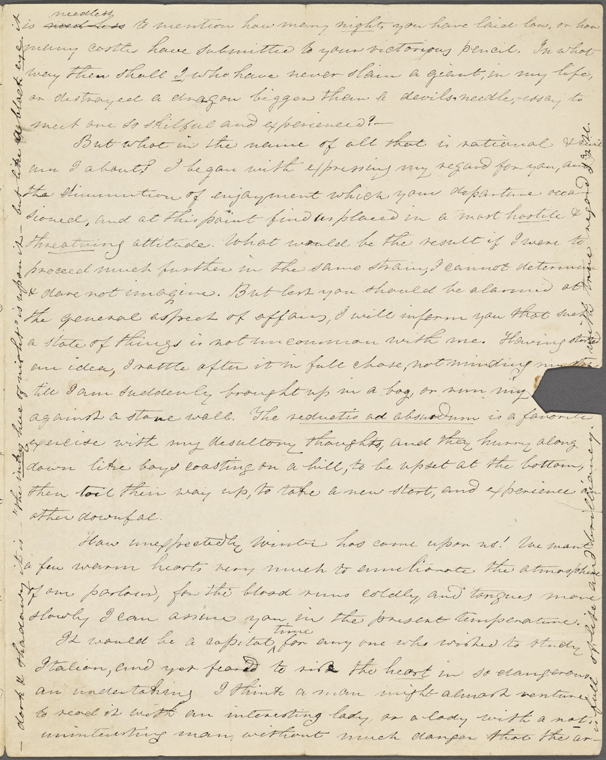 needless
is need less to mention how many nights you have laid low, or how
many castles have submitted to your victorious pencil. In what
way then shall I who have never slain a giant, in my life,
or destroyed a dragon bigger than a devils-needle, essay to
meet one so skilful and experienced?—
But what in the name of all that is rational &
am I about? I began with expressing my regard for you, and
the diminution of enjoyment which your departure occa
sioned, and at this point find us placed in a most hostile &
threatning attitude. What would be the result if I were to
proceed much further in the same strain, I cannot determine
& dare not imagine. But lest you should be alarmed at
the general aspect of affairs, I will inform you that such
a state of things is not uncommon with me. Having
an idea, I rattle after it in full chase, not minding
till I am suddenly brought up in a bog, or run my
against a stone wall. The reductio ad absurdum is a favorite
exercise with my desultory thoughts, and they hurry along
down like boys coasting on a hill, to be upset at the bottom,
then toil their way up, to take a new start, and experience an
other downfal.
How unexpectedly Winter has come upon us! We want
a few warm hearts very much to ameliorate the atmosphere
of our parlours, for the blood runs coldly, and tongues move
slowly I can assure you, in the present temperature.
time
It would be a capital for any one who wished to study
Italian, and yet feared to risk the heart in so dangerous
an undertaking. I think a man might almost venture
to read it with an interesting lady, or a lady with a not
uninteresting man, without much danger that the ar-
— dark & shadowy it is — the inky hue of night is upon it — but like a black eye it
is full of life and brilliancy. with true regard